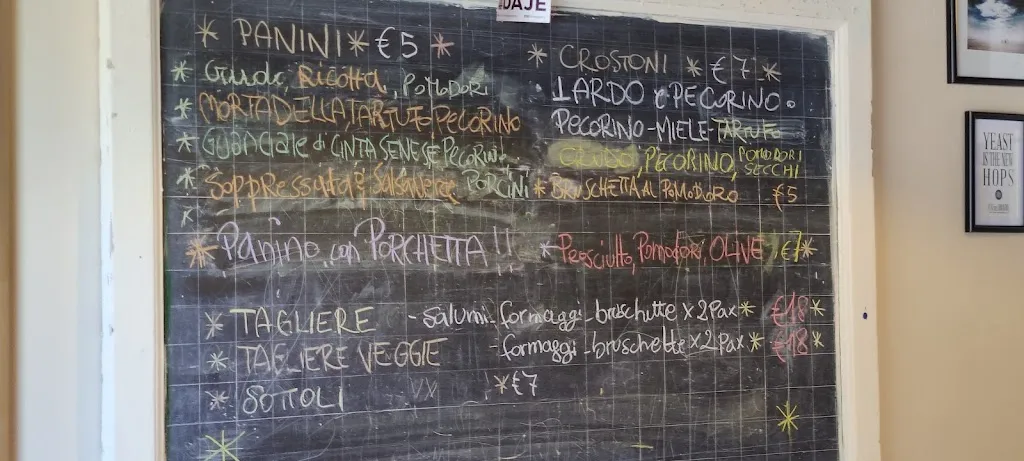 DAJE
* PANINI * €5 *
* CRUDO, RICOTTA, POMODORI
* MORTADELLA, TARTUFO, PECORINO
* GUANCIALE di CINTA SENESE, PECORINO
* SOPPRESSATA & SALSAVERDE, PORCINI
* Panino con PORCHETTA!!
* CROSTONI * €7 *
LARDO e PECORINO
PECORINO-MIELE-TARTUFO
CRUDO, PECORINO, POMODORI SECCHI
* BRUSCHETTA AL POMODORO €5
* Prosciutto, Pomodori, OLIVE €7 *
* TAGLIERE - salumi - formaggi - bruschette x 2 Pax * €18 *
* TAGLIERE VEGGIE - formaggi - bruschette x 2 Pax * €18 *
* SOTTOLI * €7
YEAST
IS THE NEW
HOPS